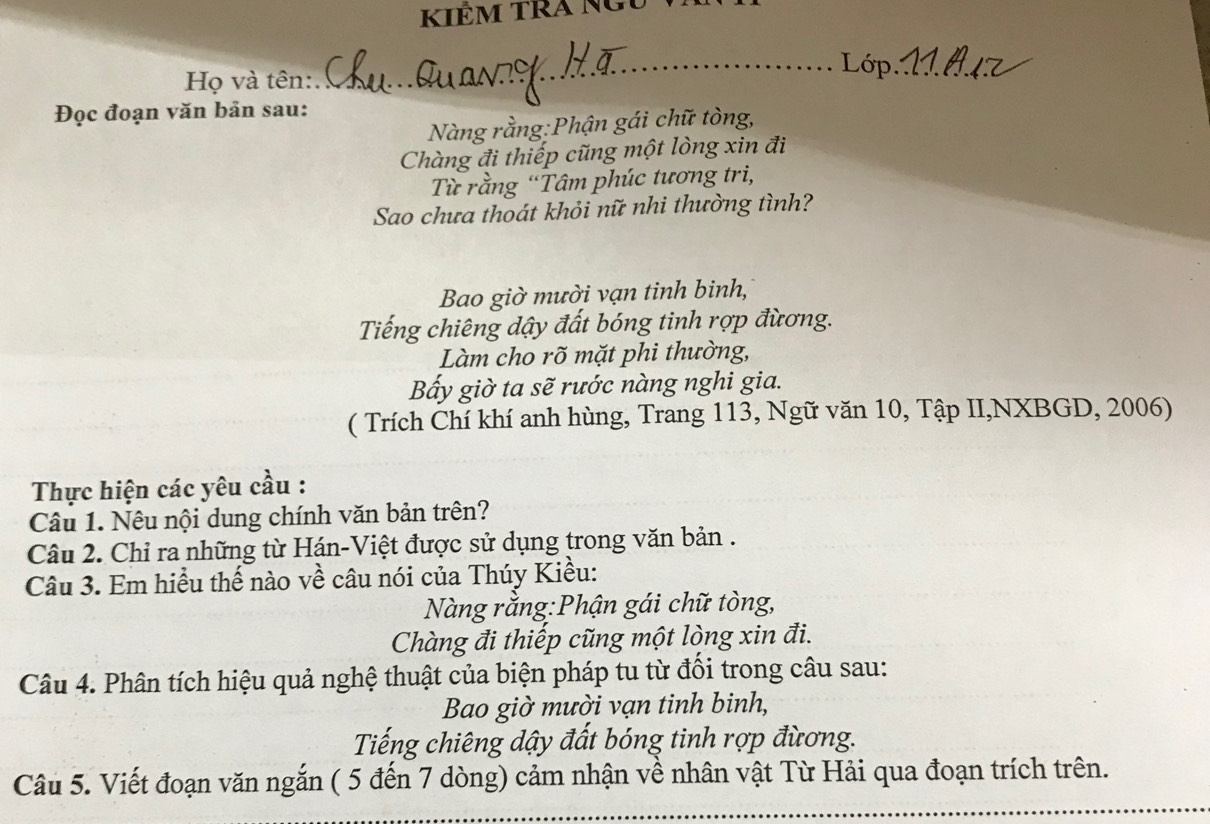 KIỂM TRA NGỮ
Họ và tên:..Chu...Quang...Hà............................ Lớp..11A12
Đọc đoạn văn bản sau:
Nàng rằng:Phận gái chữ tòng,
Chàng đi thiếp cũng một lòng xin đi
Từ rằng “Tâm phúc tương tri,
Sao chưa thoát khỏi nữ nhi thường tình?
Bao giờ mười vạn tinh binh,
Tiếng chiêng dậy đất bóng tinh rợp đừơng.
Làm cho rõ mặt phi thường,
Bấy giờ ta sẽ rước nàng nghi gia.
( Trích Chí khí anh hùng, Trang 113, Ngữ văn 10, Tập II,NXBGD, 2006)
Thực hiện các yêu cầu :
Câu 1. Nêu nội dung chính văn bản trên?
Câu 2. Chỉ ra những từ Hán-Việt được sử dụng trong văn bản .
Câu 3. Em hiểu thế nào về câu nói của Thúy Kiều:
Nàng rằng:Phận gái chữ tòng,
Chàng đi thiếp cũng một lòng xin đi.
Câu 4. Phân tích hiệu quả nghệ thuật của biện pháp tu từ đối trong câu sau:
Bao giờ mười vạn tinh binh,
Tiếng chiêng dậy đất bóng tinh rợp đừơng.
Câu 5. Viết đoạn văn ngắn ( 5 đến 7 dòng) cảm nhận về nhân vật Từ Hải qua đoạn trích trên.